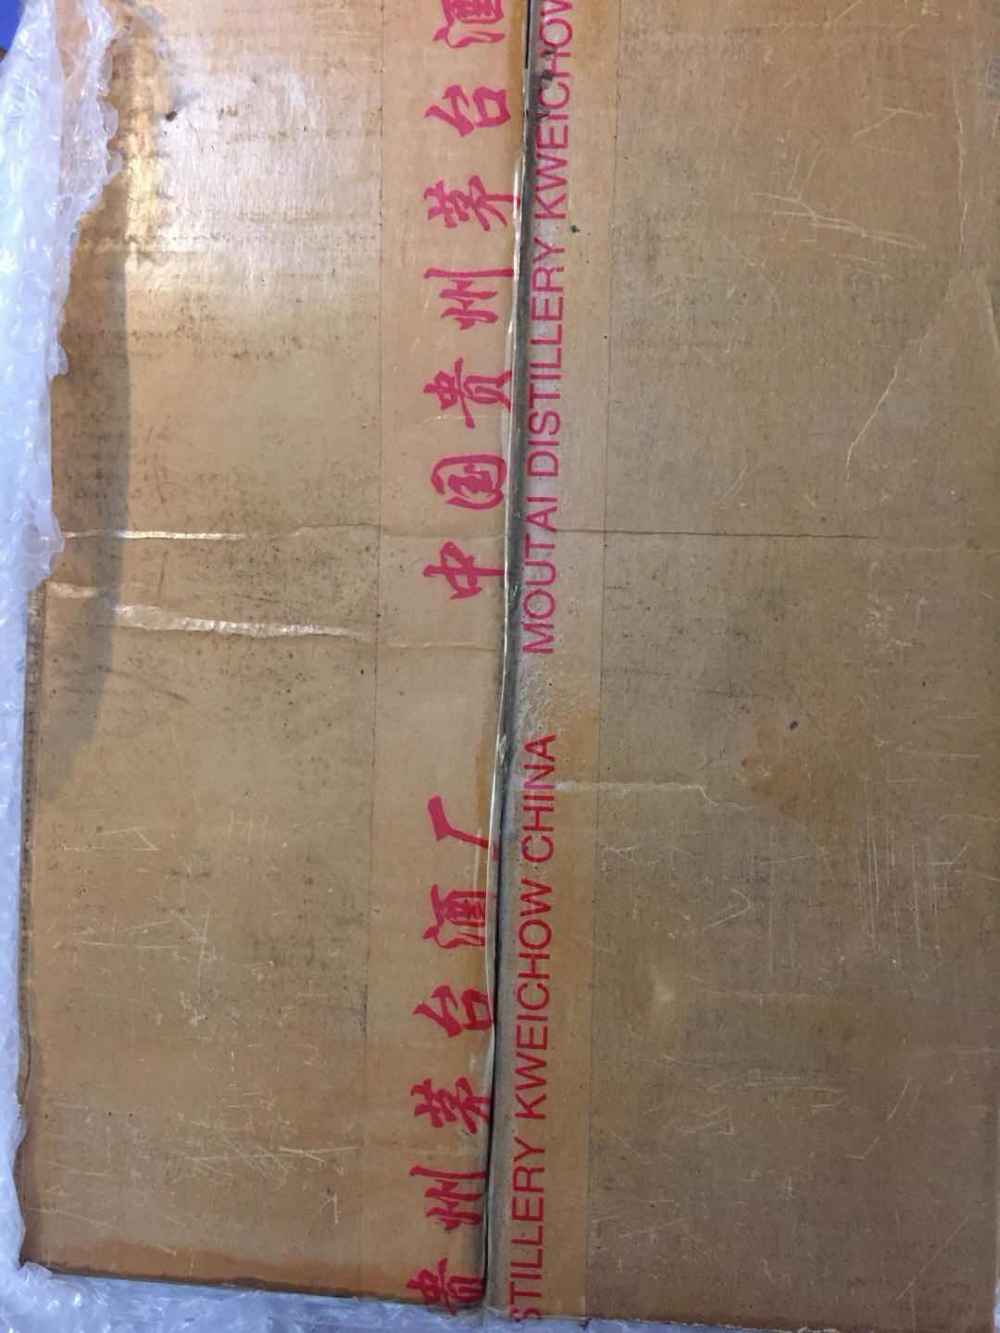 贵州茅台酒厂 中国贵州茅台酒
STILLERY KWEICHOW CHINA MOUTAI DISTILLERY KWEICHOW